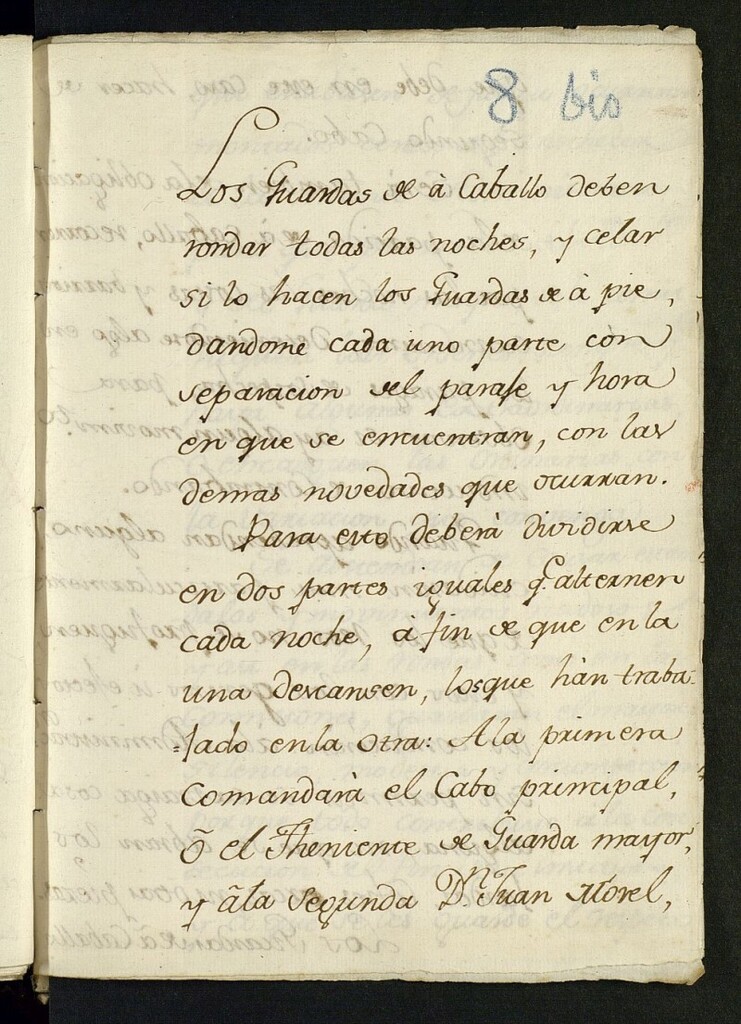 8 bis
Los Guardas de à Caballo deben
rondar todas las noches, y celar
si lo hacen los Guardas de à pie,
dandome cada uno parte con
separacion del paraje y hora
en que se encuentran, con las
demas novedades que ocurran.
Para esto deberà dividirse
en dos partes iguales q.e alternen
cada noche, à fin de que en la
una descansen, los que hàn traba-
=jado en la otra: A la primera
Comandarà el Cabo principal,
ò el Theniente de Guarda mayor,
y à la Segunda D.n Juan Morel,